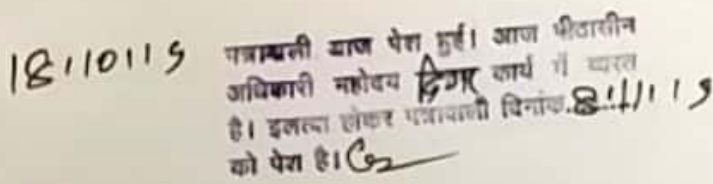 18/10/19 पत्रावली आज पेश हुई। आज पीठासीन
अधिकारी महोदय दिगर कार्य में व्यस्त
है। इलत्वा होकर पत्रावाली दिनांक 8/11/19
को पेश है।